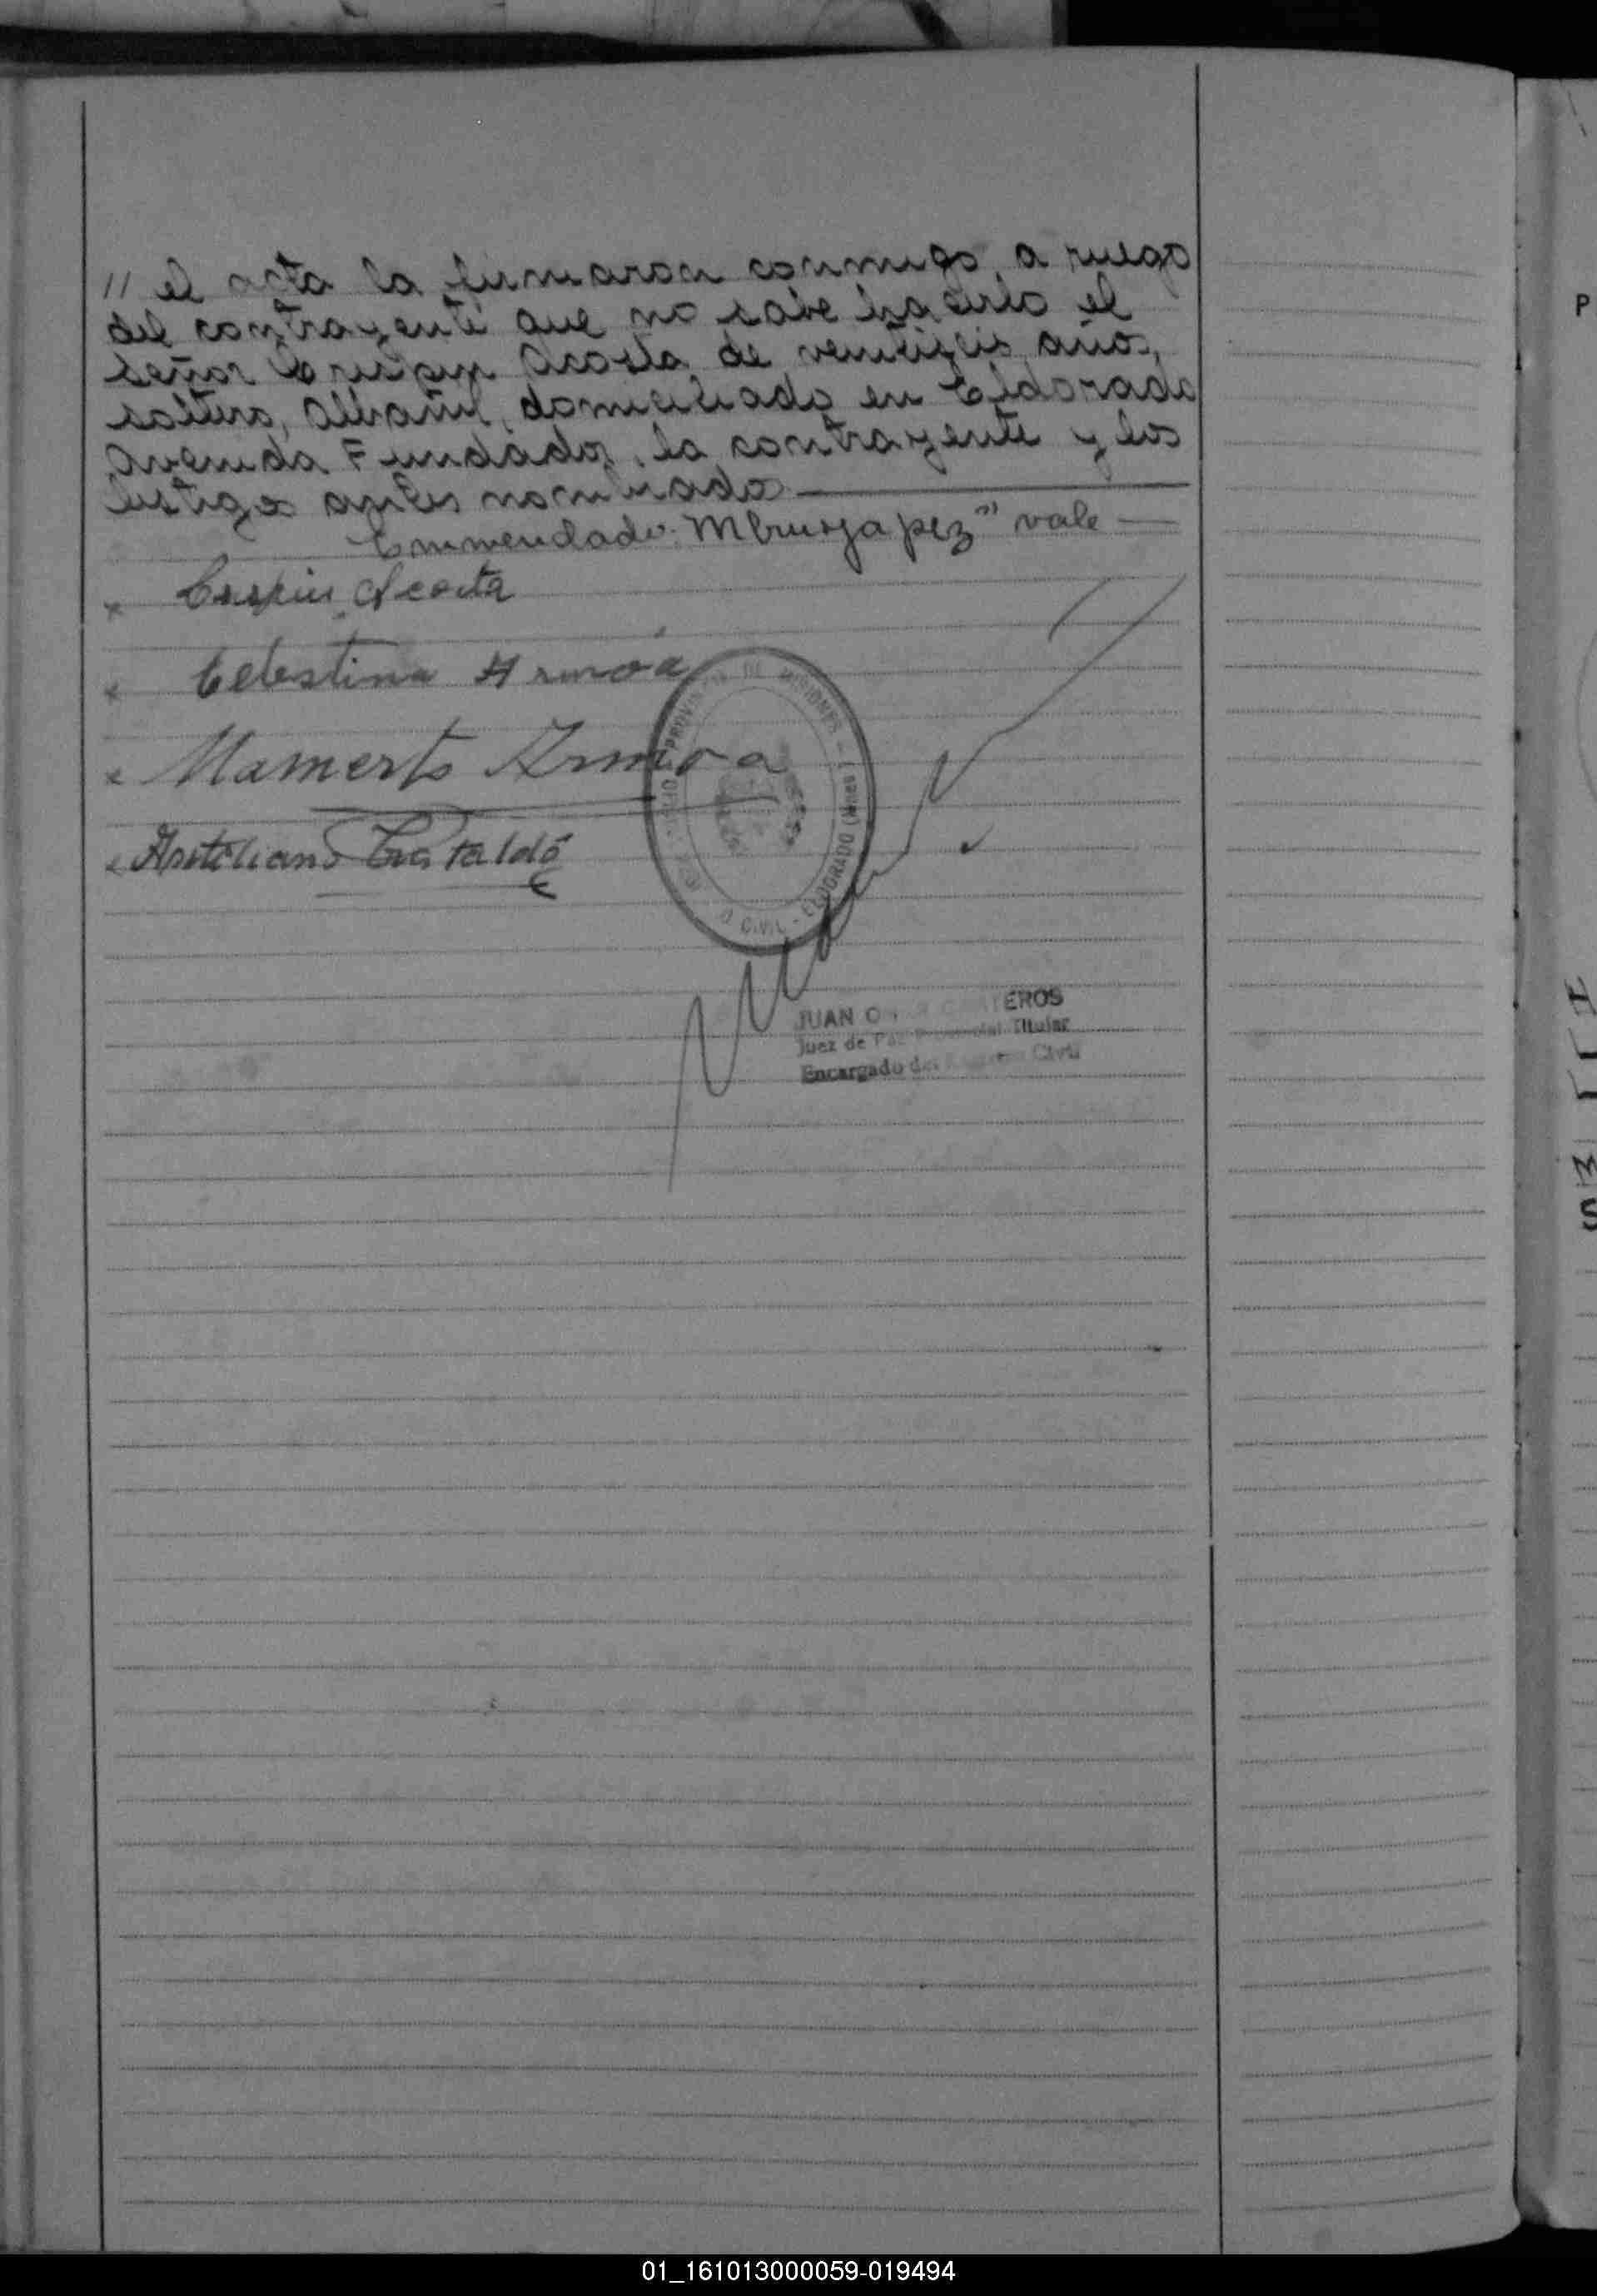 // el acta la firmaron conmigo, a ruego
del contrayente que no sabe hacerlo el
señor Crispin Acosta de ventiseis años,
soltero, Albañil, domiciliado en Eldorado
Avenida Fundador, la contrayente y los
testigos antes nombrados
Enmendado: Mbruyapez" vale
x Crispin Acosta
x Celestina Armóa
x Mamerto Armoa
x Cataldo
DE MISIONES
CIVIL - ELDORADO (Mnes
JUAN EROS
Juez de Paz Titular
Encargado del Civil
P
S
01_161013000059-019494